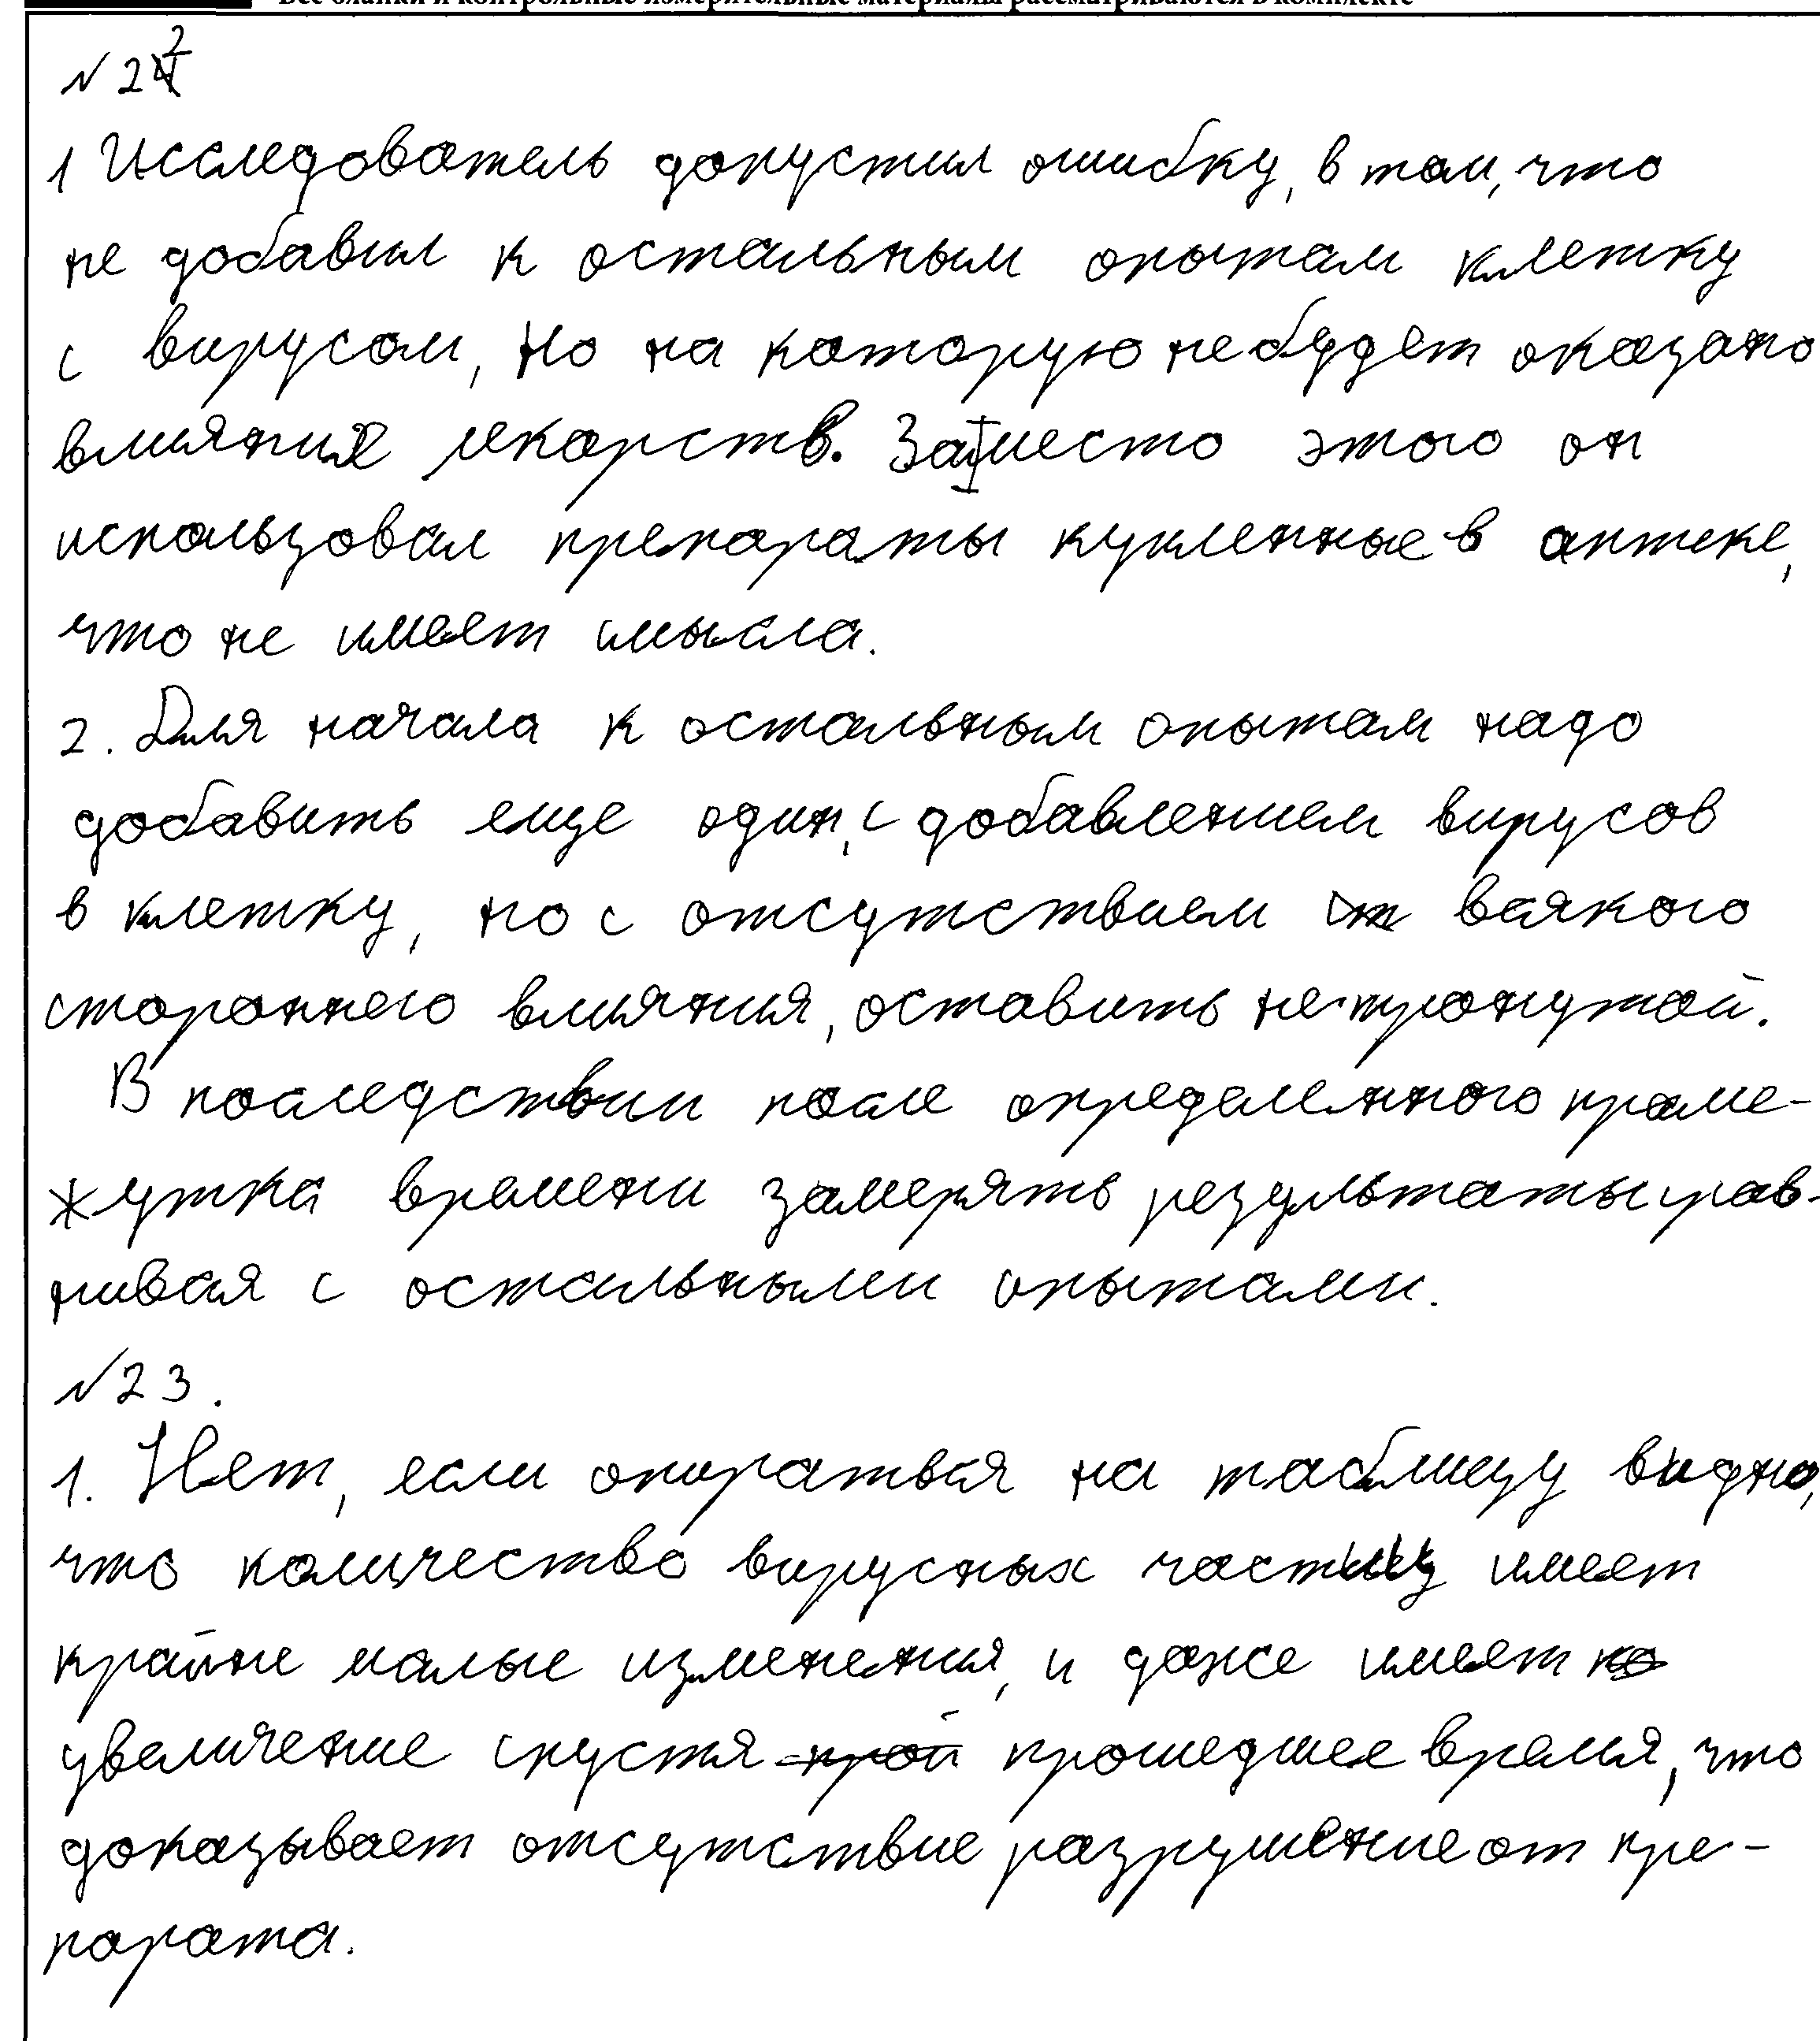 Все бланки и контрольные измерительные материалы рассматриваются в комплекте
№ 22
1 Исследователь допустил ошибку, в том, что
не добавил к остальным опытам клетку
с вирусом, но на которую не будет оказано
влияние лекарств. Заместо этого он
использовал препараты купленные в аптеке,
что не имеет смысла.
2. Для начала к остальным опытам надо
добавить еще один, с добавлением вирусов
в клетку, но с отсутствием всякого
стороннего влияния, оставить нетронутой.
В последствии после определенного проме-
жутка времени замерять результаты срав-
нивая с остальными опытами.
№23.
1. Нет, если опираться на таблицу видно,
что количество вирусных частиц имеет
крайне малые изменения, и даже имеет
увеличение спустя прошедшее время, что
доказывает отсутствие разрушение от пре-
парата.